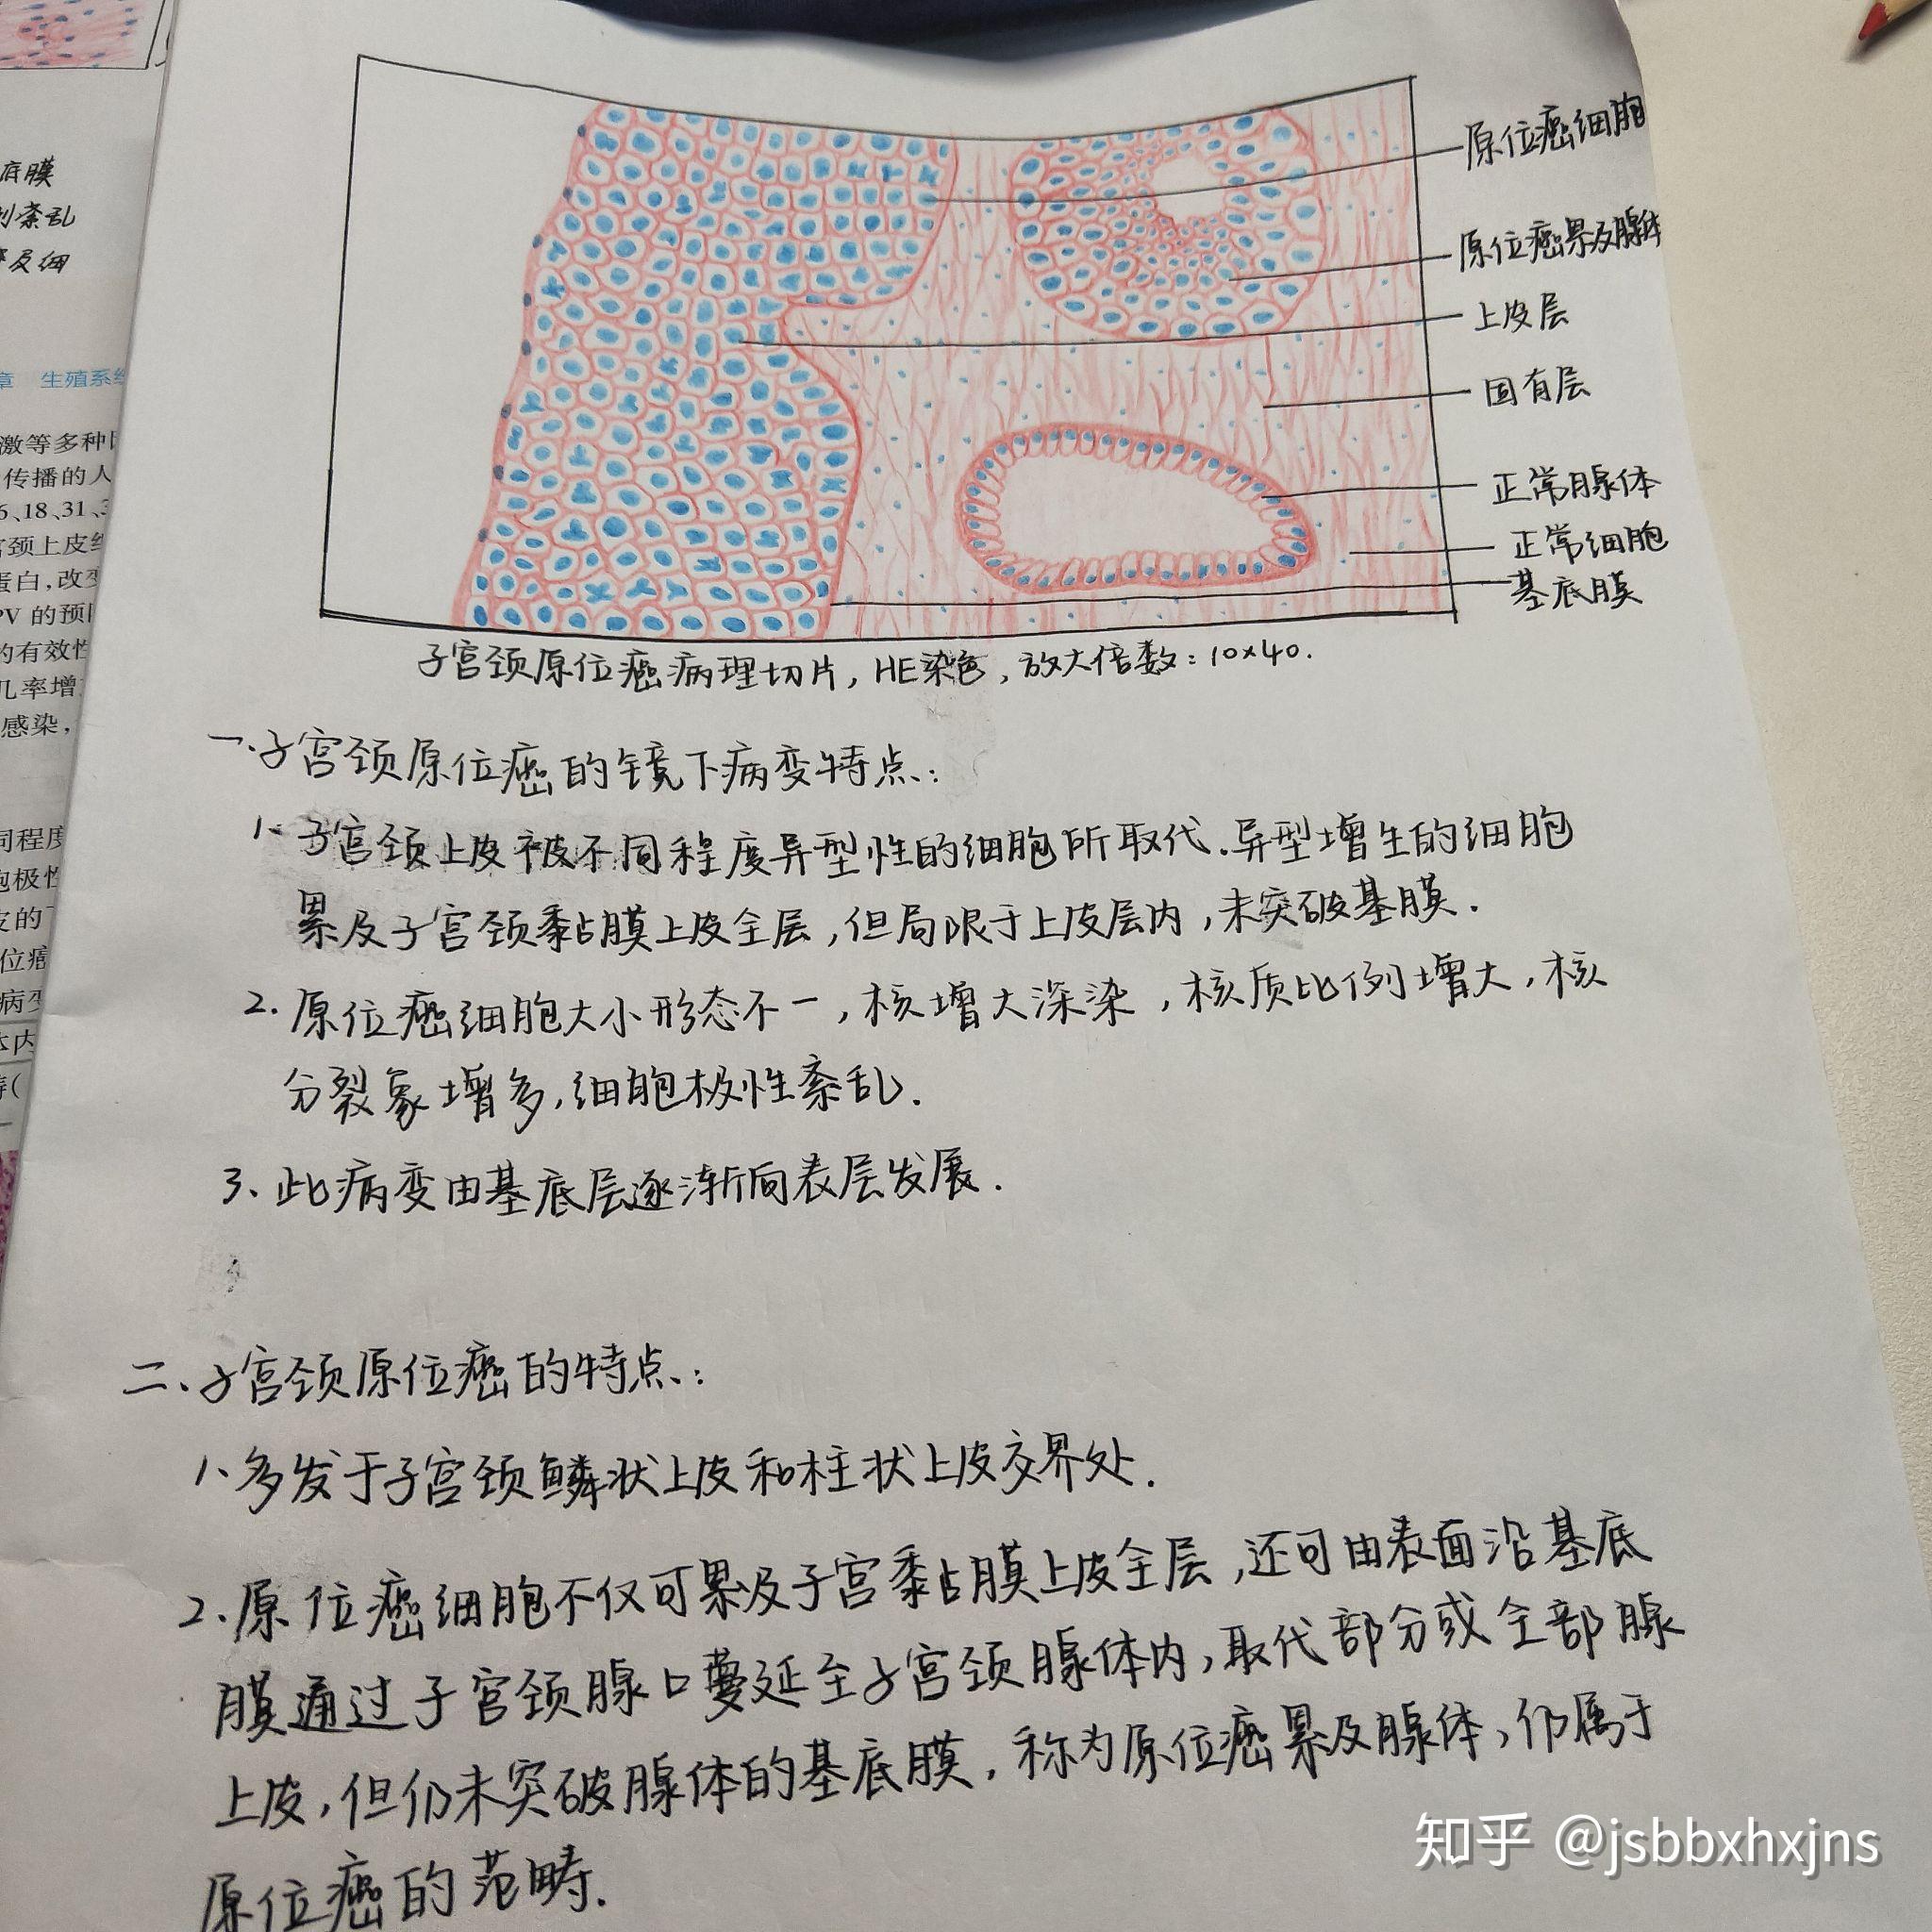 底膜
紊乱
及细
章 生殖系统
激等多种
传播的人
6、18、31、3
宫颈上皮
蛋白,改变
PV 的预
的有效性
几率增
感染,
同程度
胞极性
皮的
位癌
病变
体内
原位癌细胞
原位癌累及腺体
上皮层
固有层
正常腺体
正常细胞
基底膜
子宫颈原位癌病理切片,HE染色,放大倍数:10×40.
一.子宫颈原位癌的镜下病变特点:
1.子宫颈上皮被不同程度异型性的细胞所取代.异型增生的细胞
累及子宫颈黏膜上皮全层,但局限于上皮层内,未突破基膜.
2.原位癌细胞大小形态不一,核增大深染,核质比例增大,核
分裂象增多,细胞极性紊乱.
3、此病变由基底层逐渐向表层发展.
二、子宫颈原位癌的特点:
1、多发于子宫颈鳞状上皮和柱状上皮交界处.
2.原位癌细胞不仅可累及子宫黏膜上皮全层,还可由表面沿基底
膜通过子宫颈腺口蔓延至子宫颈腺体内,取代部分或全部腺
上皮,但仍未突破腺体的基底膜,称为原位癌累及腺体,仍属于
原位癌的范畴.
知乎 @jsbbxhxjns